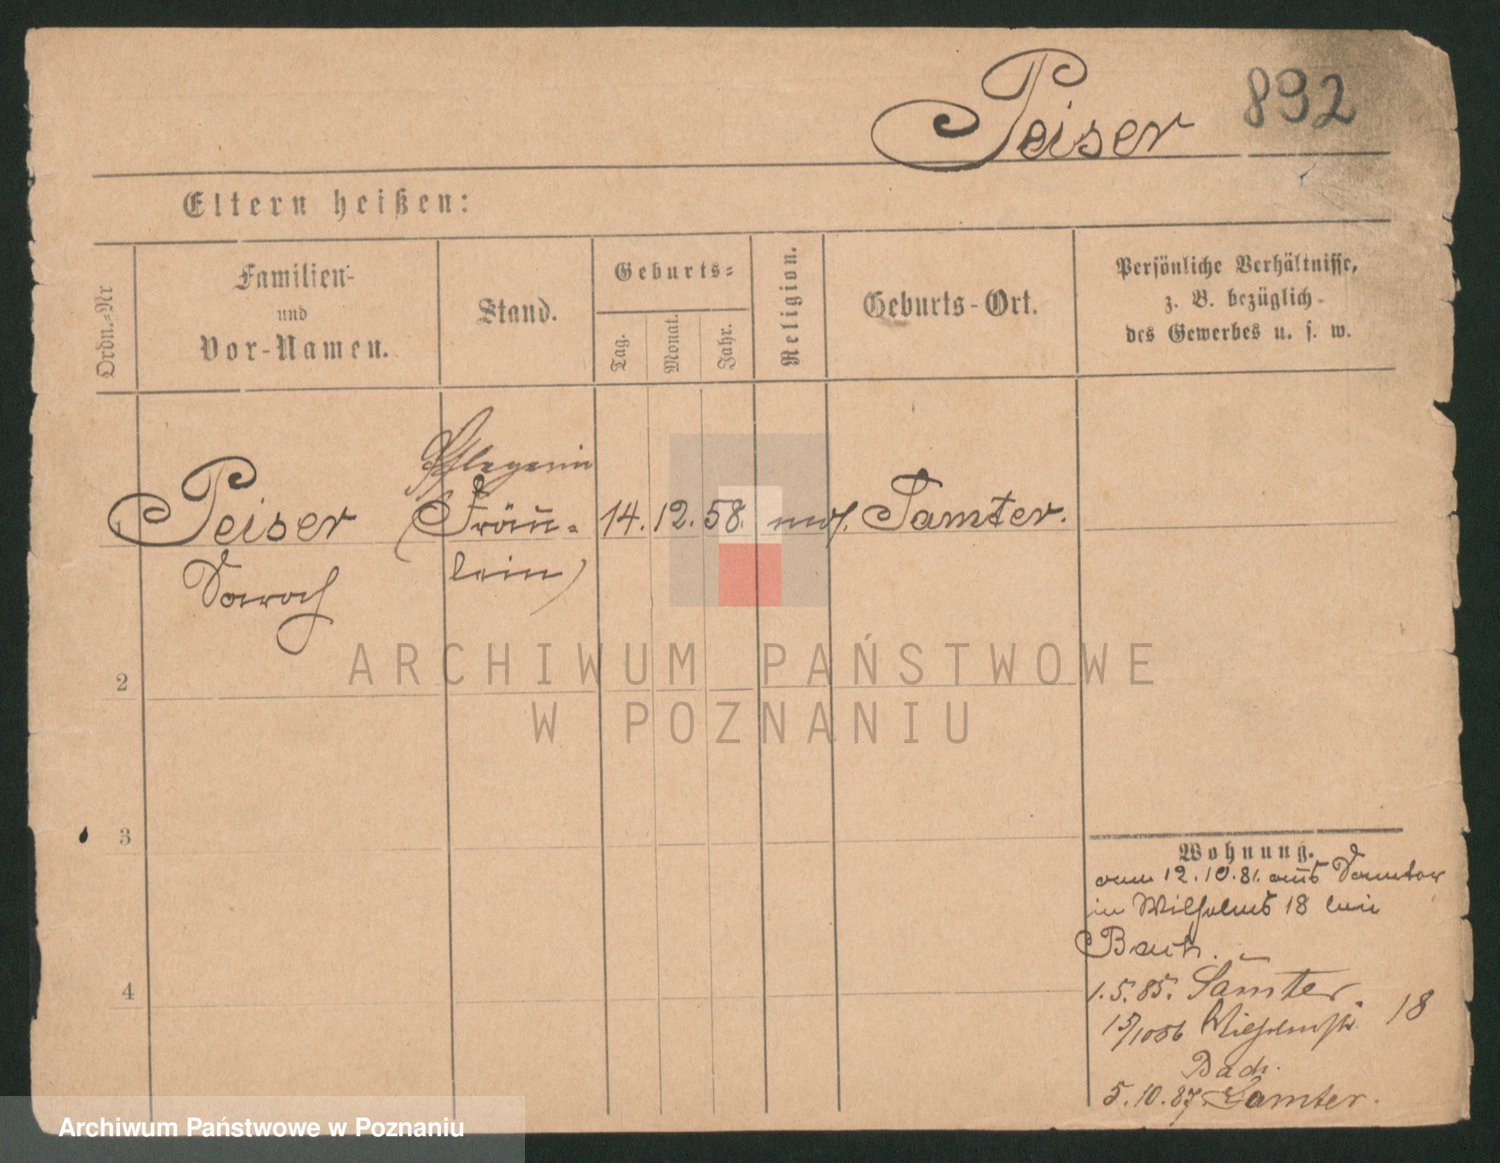 Peiser 892
Eltern heißen:
Ordn.-Nr
Familien-
und
Vor-Namen.
Stand.
Geburts-
Tag.
Monat.
Jahr.
Religion.
Geburts-Ort.
Persönliche Verhältnisse,
z. B. bezüglich
des Gewerbes u. s. w.
Pflegerin
Peiser (Fräu- 14. 12. 58. mos. Samter.
Sarah lein)
2
3
4
Wohnung.
vom 12.10.81. aus Samter
in Wilhelms 18 bei
1.5.85. Samter.
15/1086 Wilhelmstr. 18
5.10.87 Samter.
ARCHIWUM PAŃSTWOWE
W POZNANIU
Archiwum Państwowe w Poznaniu